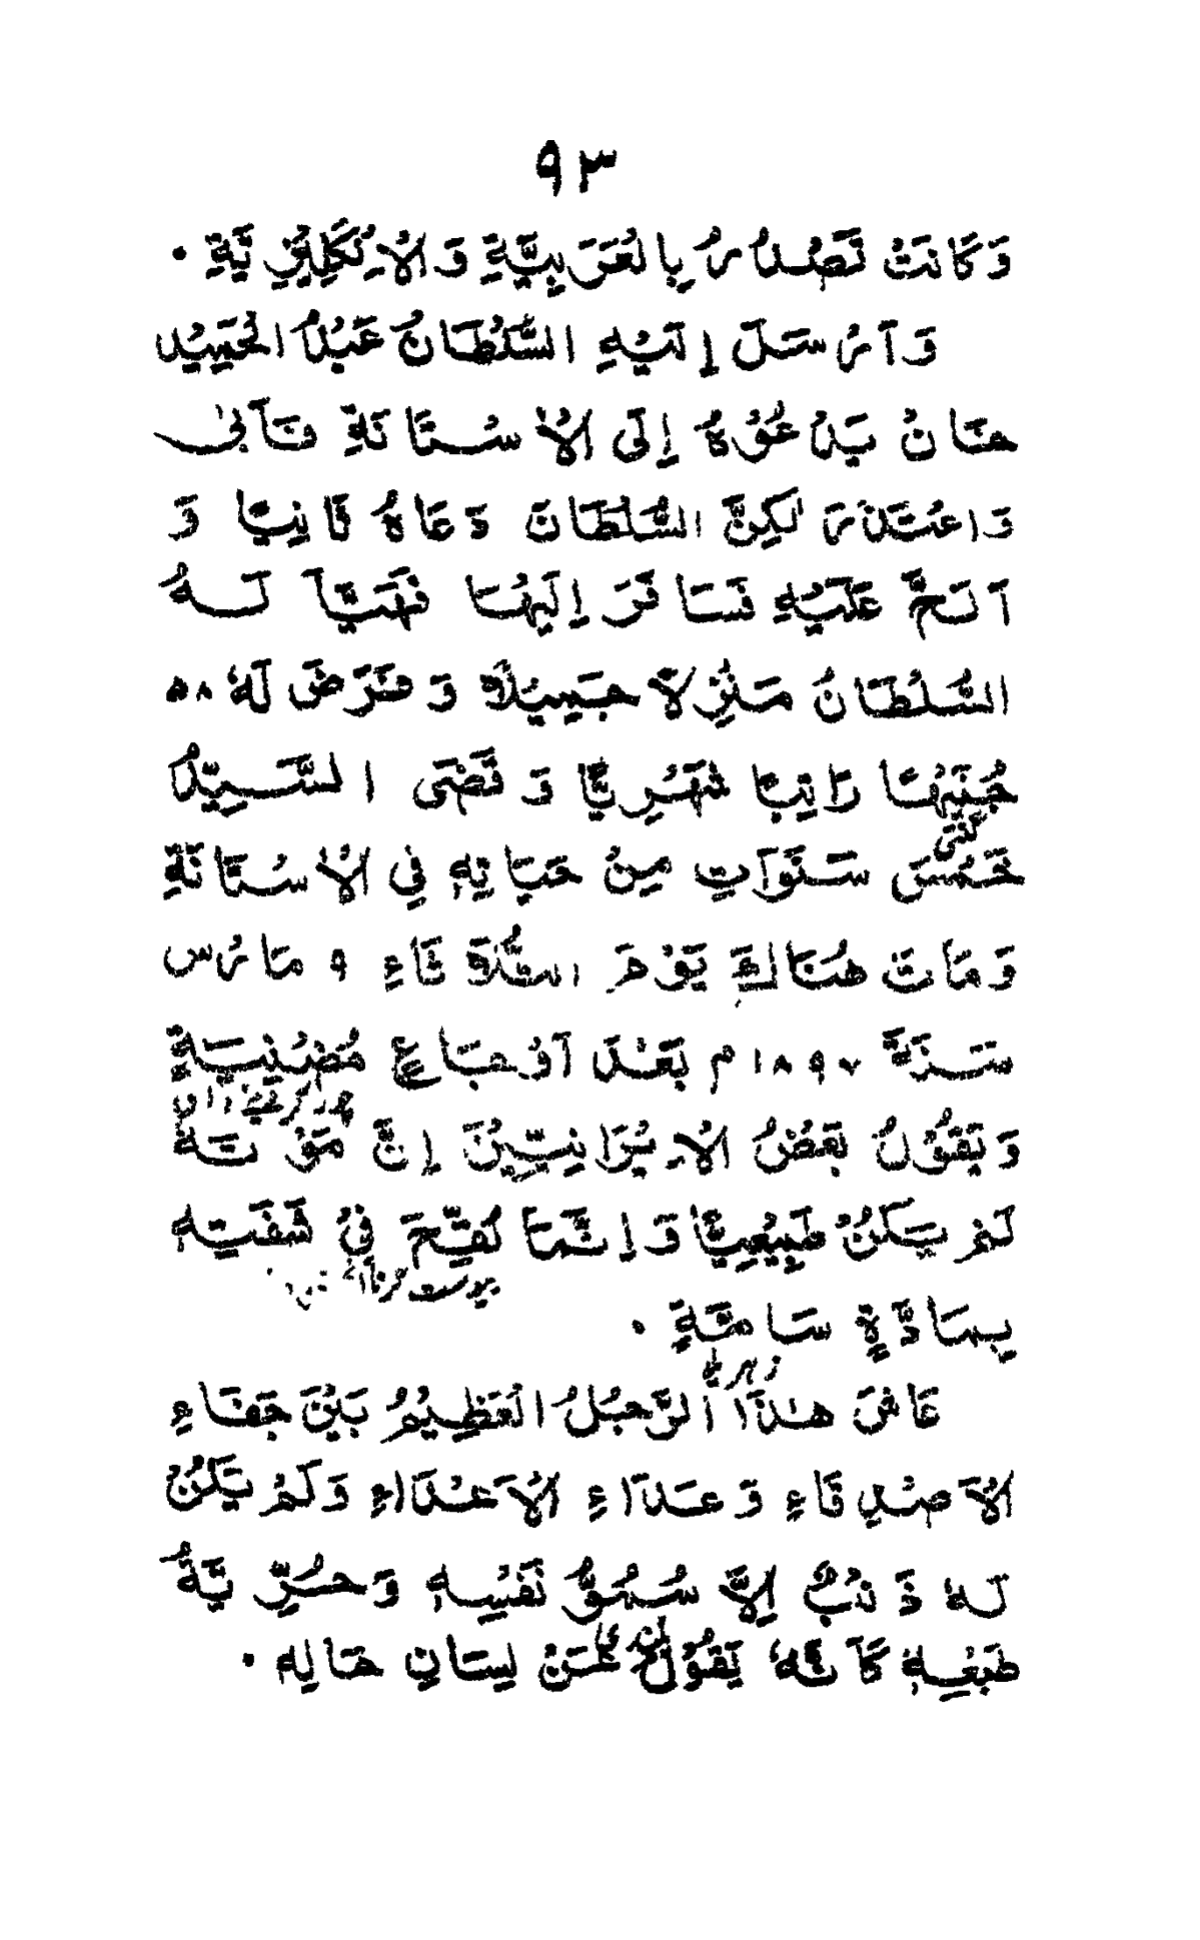 ٩٣
وَكَانَتْ تَصْدُرُ بِالْعَرَبِيَّةِ وَالْاِنْكِلِيْزِيَّةِ ۰
وَاَرْسَلَ اِلَيْهِ السُّلْطَانُ عَبْدُ الْحَمِيْد
خَانْ يَدْعُوْهُ اِلَى الْاٰسْتَانَةِ فَاَبىٰ
وَاعْتَذَرَ لٰكِنَّ السُّلْطَانَ دَعَاهُ ثَانِيًا وَ
اَلَحَّ عَلَيْهِ فَسَافَرَ اِلَيْهَا فَهَيَّأَ لَـهُ
السُّلْطَانُ مَنْزِلًا جَمِيْلًا وَفَرَضَ لَهٗ ۵۸
جُنَيْهًا رَاتِبًا شَهْرِيًّا وَقَضَى السَّيِّدُ
خَمْسَ سَنَوَاتٍ مِنْ حَيَاتِهٖ فِي الْاٰسْتَانَةِ
وَمَاتَ هُنَالِكَ يَوْمَ الثُّلَاثَاءِ ٩ مَارْس
سَنَةَ ١٨٩٧م بَعْدَ اَوْجَاعٍ مُضْنِيَةٍ
وَيَقُوْلُ بَعْضُ الْاِيْرَانِيِّيْنَ اِنَّ مَوْتَهٗ
لَمْ يَكُنْ طَبِيْعِيًّا وَاِنَّمَا لُقِّحَ فِيْ شَفَتِهٖ
بِمَادَّةٍ سَامَّةٍ ۰
زہریلے
عَاشَ هٰذَا الرَّجُلُ الْعَظِيْمُ بَيْنَ جَفَاءِ
الْاَصْدِقَاءِ وَعَدَاءِ الْاَعْدَاءِ وَلَمْ يَكُنْ
لَهٗ ذَنْبٌ اِلَّا سُمُوُّ نَفْسِهٖ وَحُرِّيَّةُ
طَبْعِهٖ كَاَنَّهٗ يَقُوْلُ عَنْ لِسَانِ حَالِهٖ ۰